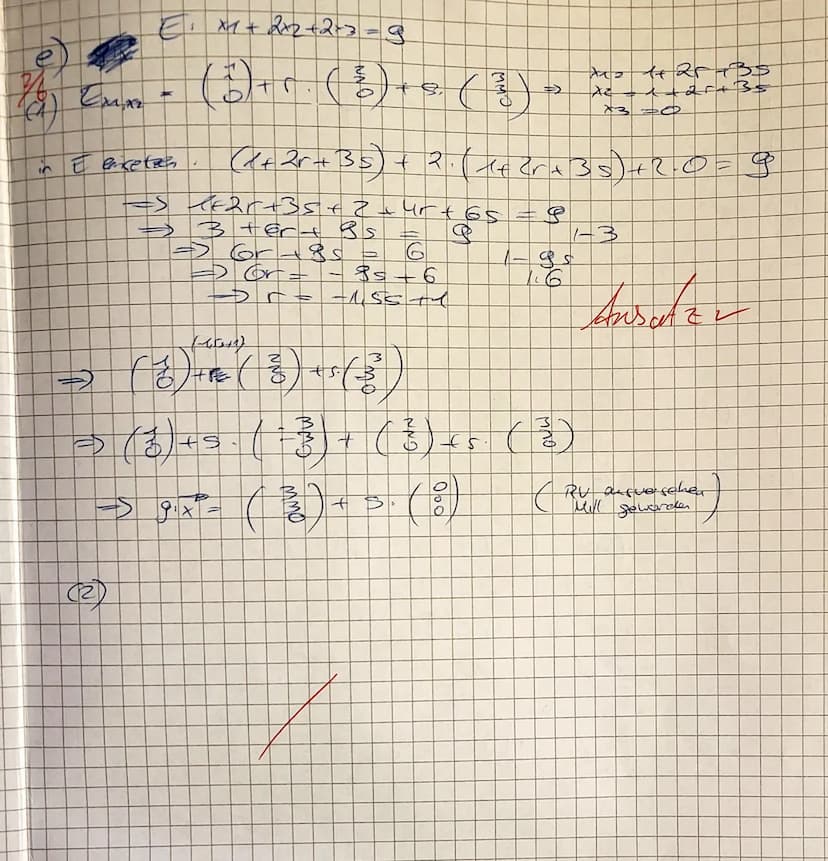 E: x1 + 2x2 + 2x3 = 9
e)
2/6
(1) Ex1,x2 = (1 1 0) + r · (2 2 0) + s · (3 3 0) => x1 = 1 + 2r + 3s
x2 = 1 + 2r + 3s
x3 = 0
in E einsetzen. (1 + 2r + 3s) + 2 · (1 + 2r + 3s) + 2 · 0 = 9
=> 1 + 2r + 3s + 2 + 4r + 6s = 9
=> 3 + 6r + 9s = 9 | -3
=> 6r + 9s = 6 | - 9s
=> 6r = - 9s + 6 | : 6
=> r = -1,5s + 1
Ansatz ✓
(-1,5s+1)
=> (1 1 0) + (2 2 0) + s · (3 3 0)
=> (1 1 0) + s · (-3 -3 0) + (2 2 0) + s · (3 3 0)
=> g: x = (3 3 0) + s · (0 0 0) ( RV ausversehen
Null geworden )
(2)